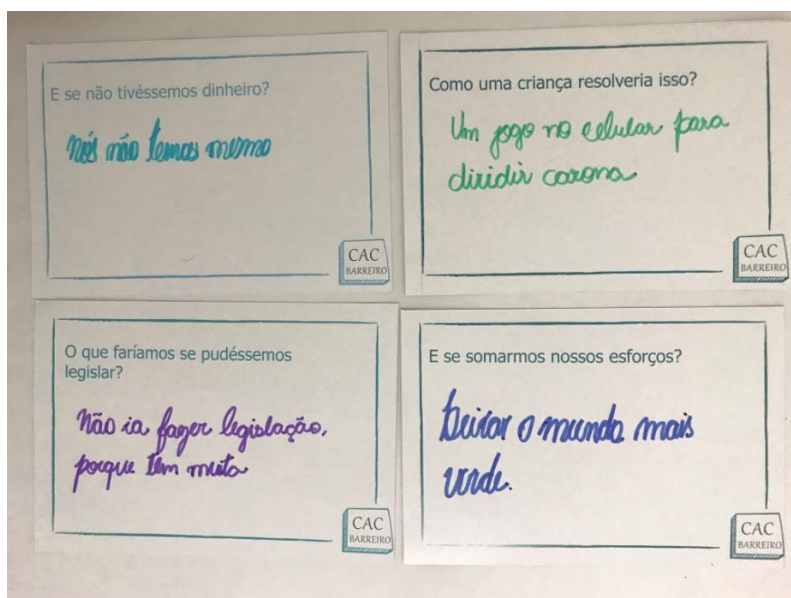 E se não tivéssemos dinheiro?
Nós não temos mesmo
CAC
BARREIRO
Como uma criança resolveria isso?
Um jogo no celular para
dividir carona.
CAC
BARREIRO
O que faríamos se pudéssemos
legislar?
Não ia fazer legislação,
porque tem muita
CAC
BARREIRO
E se somarmos nossos esforços?
Deixar o mundo mais
verde.
CAC
BARREIRO